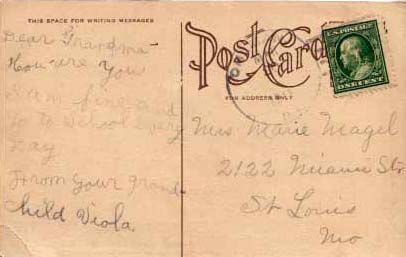 THIS SPACE FOR WRITING MESSAGES
Dear Grandma
How are you
I am fine and
go to School every
day
From your grand
child Viola
Post Card
FOR ADDRESS ONLY
U.S. POSTAGE
ONE CENT
Mrs Marie Magel
2122 Miami Str
St Louis
Mo